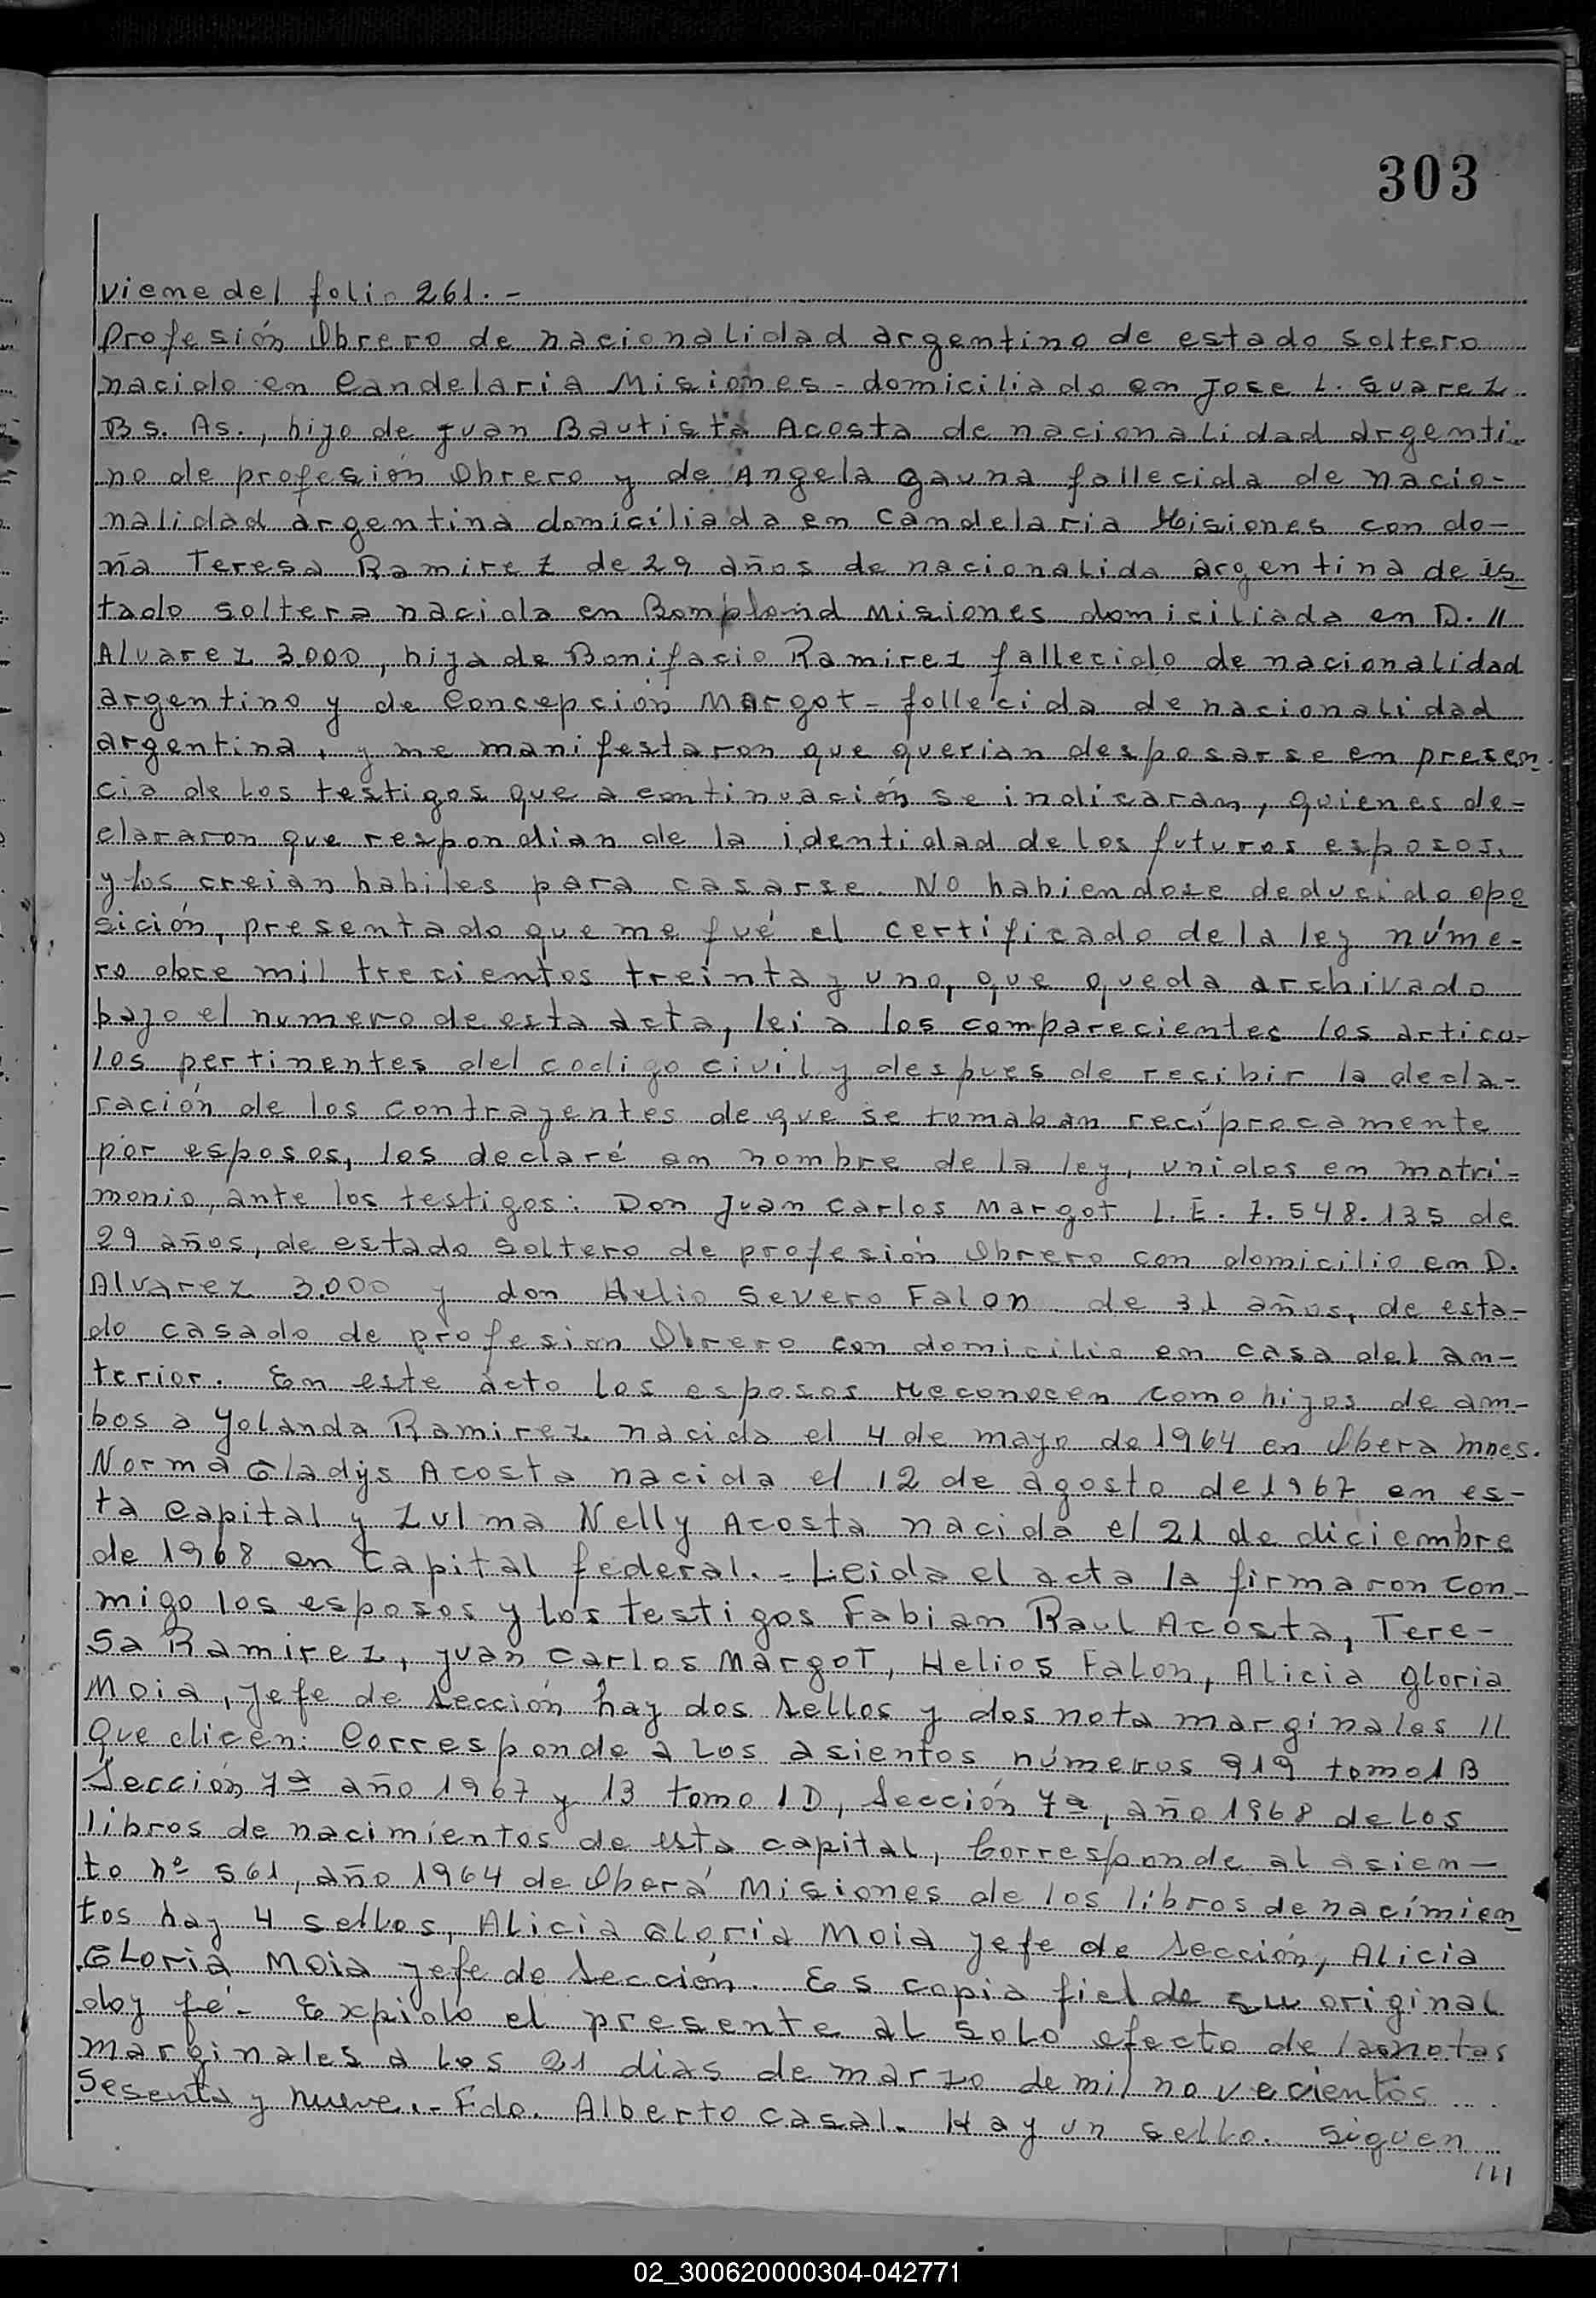 303
viene del folio 261.-
Profesión Obrero de nacionalidad argentino de estado soltero
nacido en Candelaria Misiones - domiciliado en Jose L. Suarez
Bs. As., hijo de Juan Bautista Acosta de nacionalidad argenti-
no de profesión Obrero y de Angela Gauna fallecida de nacio-
nalidad argentina domiciliada en Candelaria Misiones con do-
ña Teresa Ramirez de 29 años de nacionalida argentina de es
tado soltera nacida en Bompland Misiones domiciliada en D. //
Alvarez 3.000, hija de Bonifacio Ramirez fallecido de nacionalidad
argentino y de Concepción Margot - fallecida de nacionalidad
argentina, y me manifestaron que querian desposarse en presen
cia de los testigos que a continuación se indicaran, quienes de-
clararon que respondian de la identidad de los futuros esposos,
y los creian habiles para casarse. No habiendose deducido opo
sición, presentado que me fué el certificado de la ley núme-
ro doce mil trecientos treinta y uno, que queda archivado
bajo el numero de esta acta, lei a los comparecientes los articu-
los pertinentes del codigo civil y despues de recibir la decla-
ración de los contrayentes de que se tomaban recíprocamente
por esposos, los declaré en nombre de la ley, unidos en matri-
monio, ante los testigos: Don Juan Carlos Margot L.E. 7.548.135 de
29 años, de estado soltero de profesión Obrero con domicilio en D.
Alvarez 3.000 y don Helio Severo Falon de 31 años, de esta-
do casado de profesion Obrero con domicilio en casa del an-
terior. En este acto los esposos reconocen como hijos de am-
bos a Yolanda Ramirez nacida el 4 de mayo de 1964 en Obera Mnes.
Norma Gladys Acosta nacida el 12 de agosto de 1967 en es-
ta Capital y Zulma Nelly Acosta nacida el 21 de diciembre
de 1968 en Capital federal.- Leida el acta la firmaron con-
migo los esposos y los testigos Fabian Raul Acosta, Tere-
sa Ramirez, Juan Carlos Margot, Helios Falon, Alicia Gloria
Moia, Jefe de Sección hay dos sellos y dos nota marginales //
Que dicen: Corresponde a los asientos números 919 tomo 1 B
Sección 7ª año 1967 y 13 tomo 1 D, Sección 7ª, año 1968 de los
libros de nacimientos de esta capital, Corresponde al asien-
to nº 561, año 1964 de Oberá Misiones de los libros de nacímien
tos hay 4 sellos, Alicia Gloria Moia Jefe de Sección, Alicia
Gloria Moia Jefe de Sección. Es copia fiel de su original
doy fe.- Expido el presente al solo efecto de las notas
marginales a los 21 dias de marzo de mil novecientos
Sesenta y nueve.- Fdo. Alberto Casal. Hay un sello. Siguen
///
02_300620000304-042771